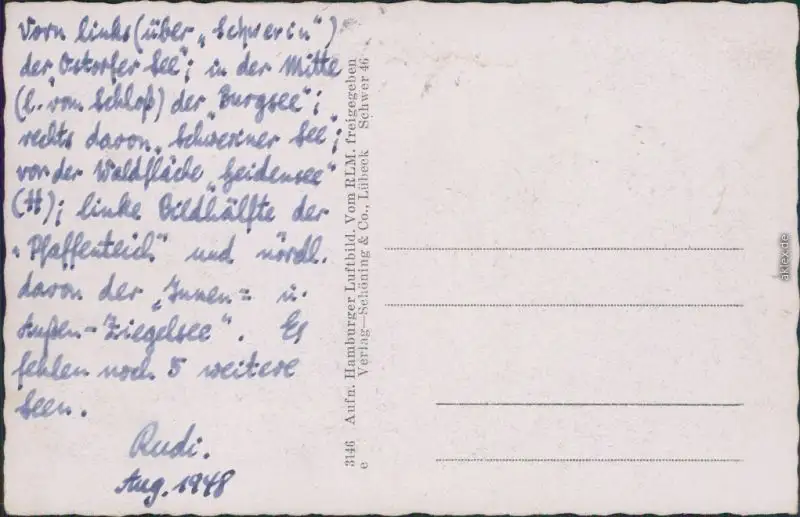 Vorn links (über „Schwerin")
der „Ostorfer See"; in der Mitte
(l. vom Schloß) der „Burgsee";
rechts davon „Schweriner See";
vor der Waldfläche „Heidensee"
(H); linke Bildhälfte der
„Pfaffenteich" und nördl.
davon der „Innen= u.
Außen-Ziegelsee". Es
fehlen noch 5 weitere
Seen.
Rudi.
Aug. 1948
3146 Aufn. Hamburger Luftbild. Vom RLM. freigegeben
e Verlag—Schöning & Co., Lübeck Schwer 46
aklex.de